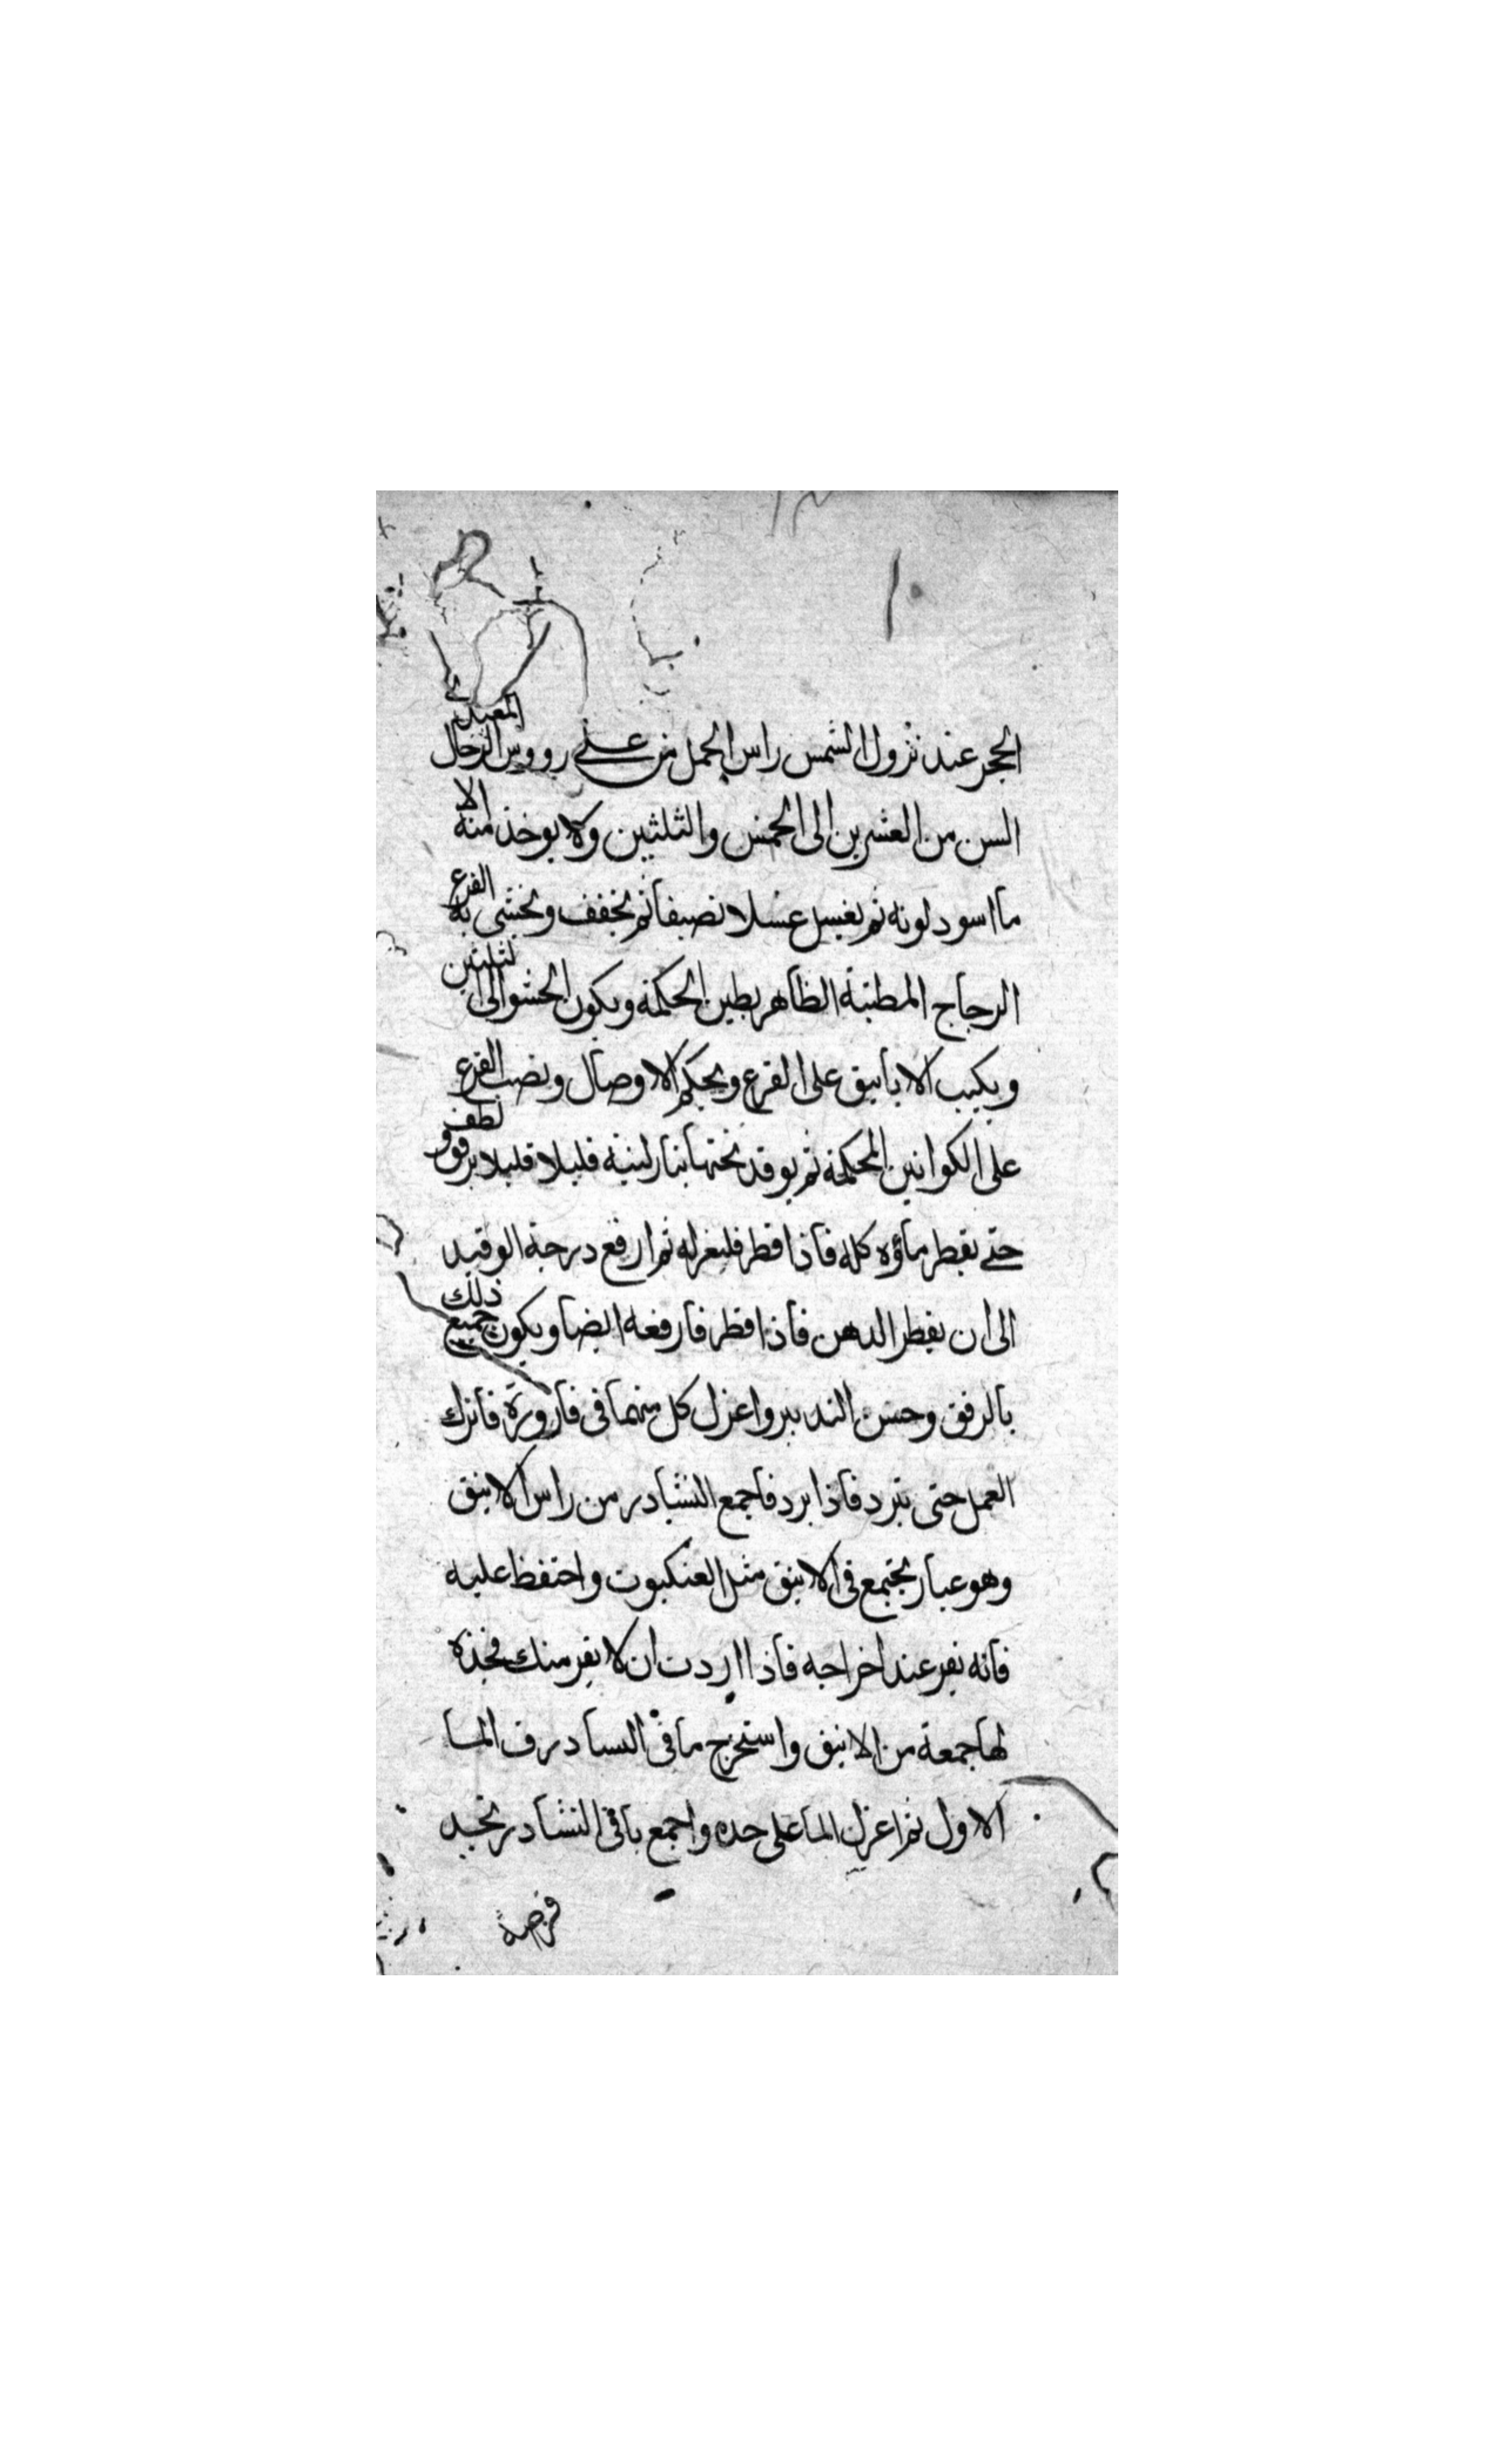 الحجر عند نزول الشمس راس الحمل من على رووس الرجال المعتدلى
السن من العشرين الى الخمس والثلثين ولا يوخذ منه الا
ما اسود لونه ثم يغسل غسلا نصيفا ثم يخفف ويحشى به القرع
الزجاج المطينة الظاهر بطين الحكمة ويكون الحشو الى الثلثين
ويكب الانابيق على القرع ويحكم الاوصال ونصب القرع
على الكوانين المحكمة ثم يوقد تحتها بنار لينة قليلا قليلا برفق ولطف
حتى يقطر ماؤه كله فاذا قطر فليعزله ثم ارفع درجة الوقيد
الى ان يقطر الدهن فاذا قطر فارفعه ايضا ويكون جميع ذلك
بالرفق وحسن التدبير واعزل كل منهما فى قارورة فاترك
العمل حتى يبرد فاذا برد فاجمع النشادر من راس الانبيق
وهو غبار يجتمع فى الانبيق مثل العنكبوت واحتفظ عليه
فانه يفر عند اخراجه فاذا اردت ان لا يفر منك فخذه
لها جمعة من الانبيق واستخرج ما فى النسادر ف الما
الاول ثم اعزل الما على حده واجمع باقى النشادر تجد